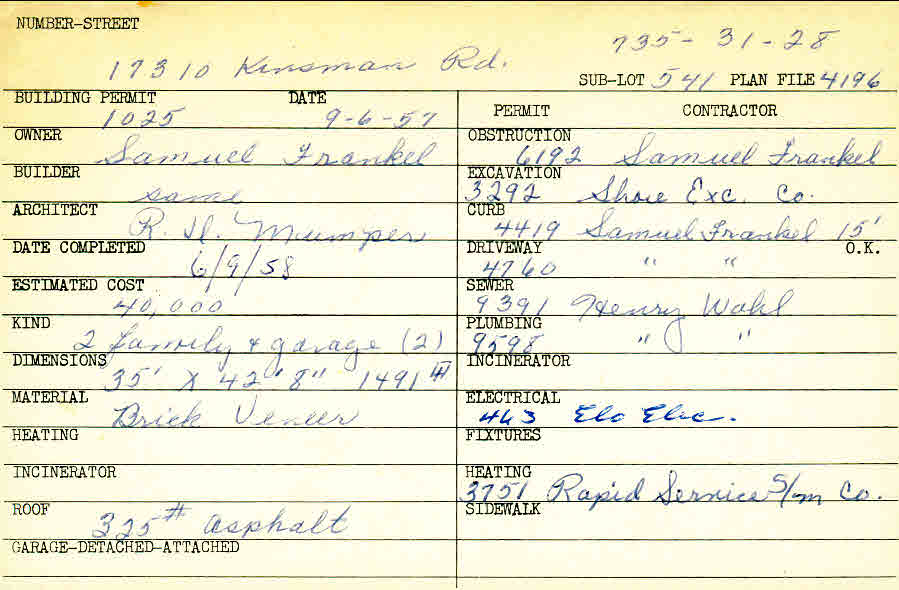 NUMBER-STREET
735-31-28
17310 Kinsman Rd.
SUB-LOT 541 PLAN FILE 4196
BUILDING PERMIT DATE
1025 9-6-57
OWNER
Samuel Frankel
BUILDER
same
ARCHITECT
R. H. Mumper
DATE COMPLETED
6/9/58
ESTIMATED COST
40,000
KIND
2 family & garage (2)
DIMENSIONS
35' X 42'8" 1491
MATERIAL
Brick Veneer
HEATING
INCINERATOR
ROOF
325# asphalt
GARAGE-DETACHED-ATTACHED
PERMIT CONTRACTOR
OBSTRUCTION
6192 Samuel Frankel
EXCAVATION
3292 Shore Exc. Co.
CURB
4419 Samuel Frankel 15'
DRIVEWAY O.K.
4760 " "
SEWER
9391 Henry Wahl
PLUMBING
9598 " "
INCINERATOR
ELECTRICAL
463 Elc Elec.
FIXTURES
HEATING
3751 Rapid Service S/m Co.
SIDEWALK